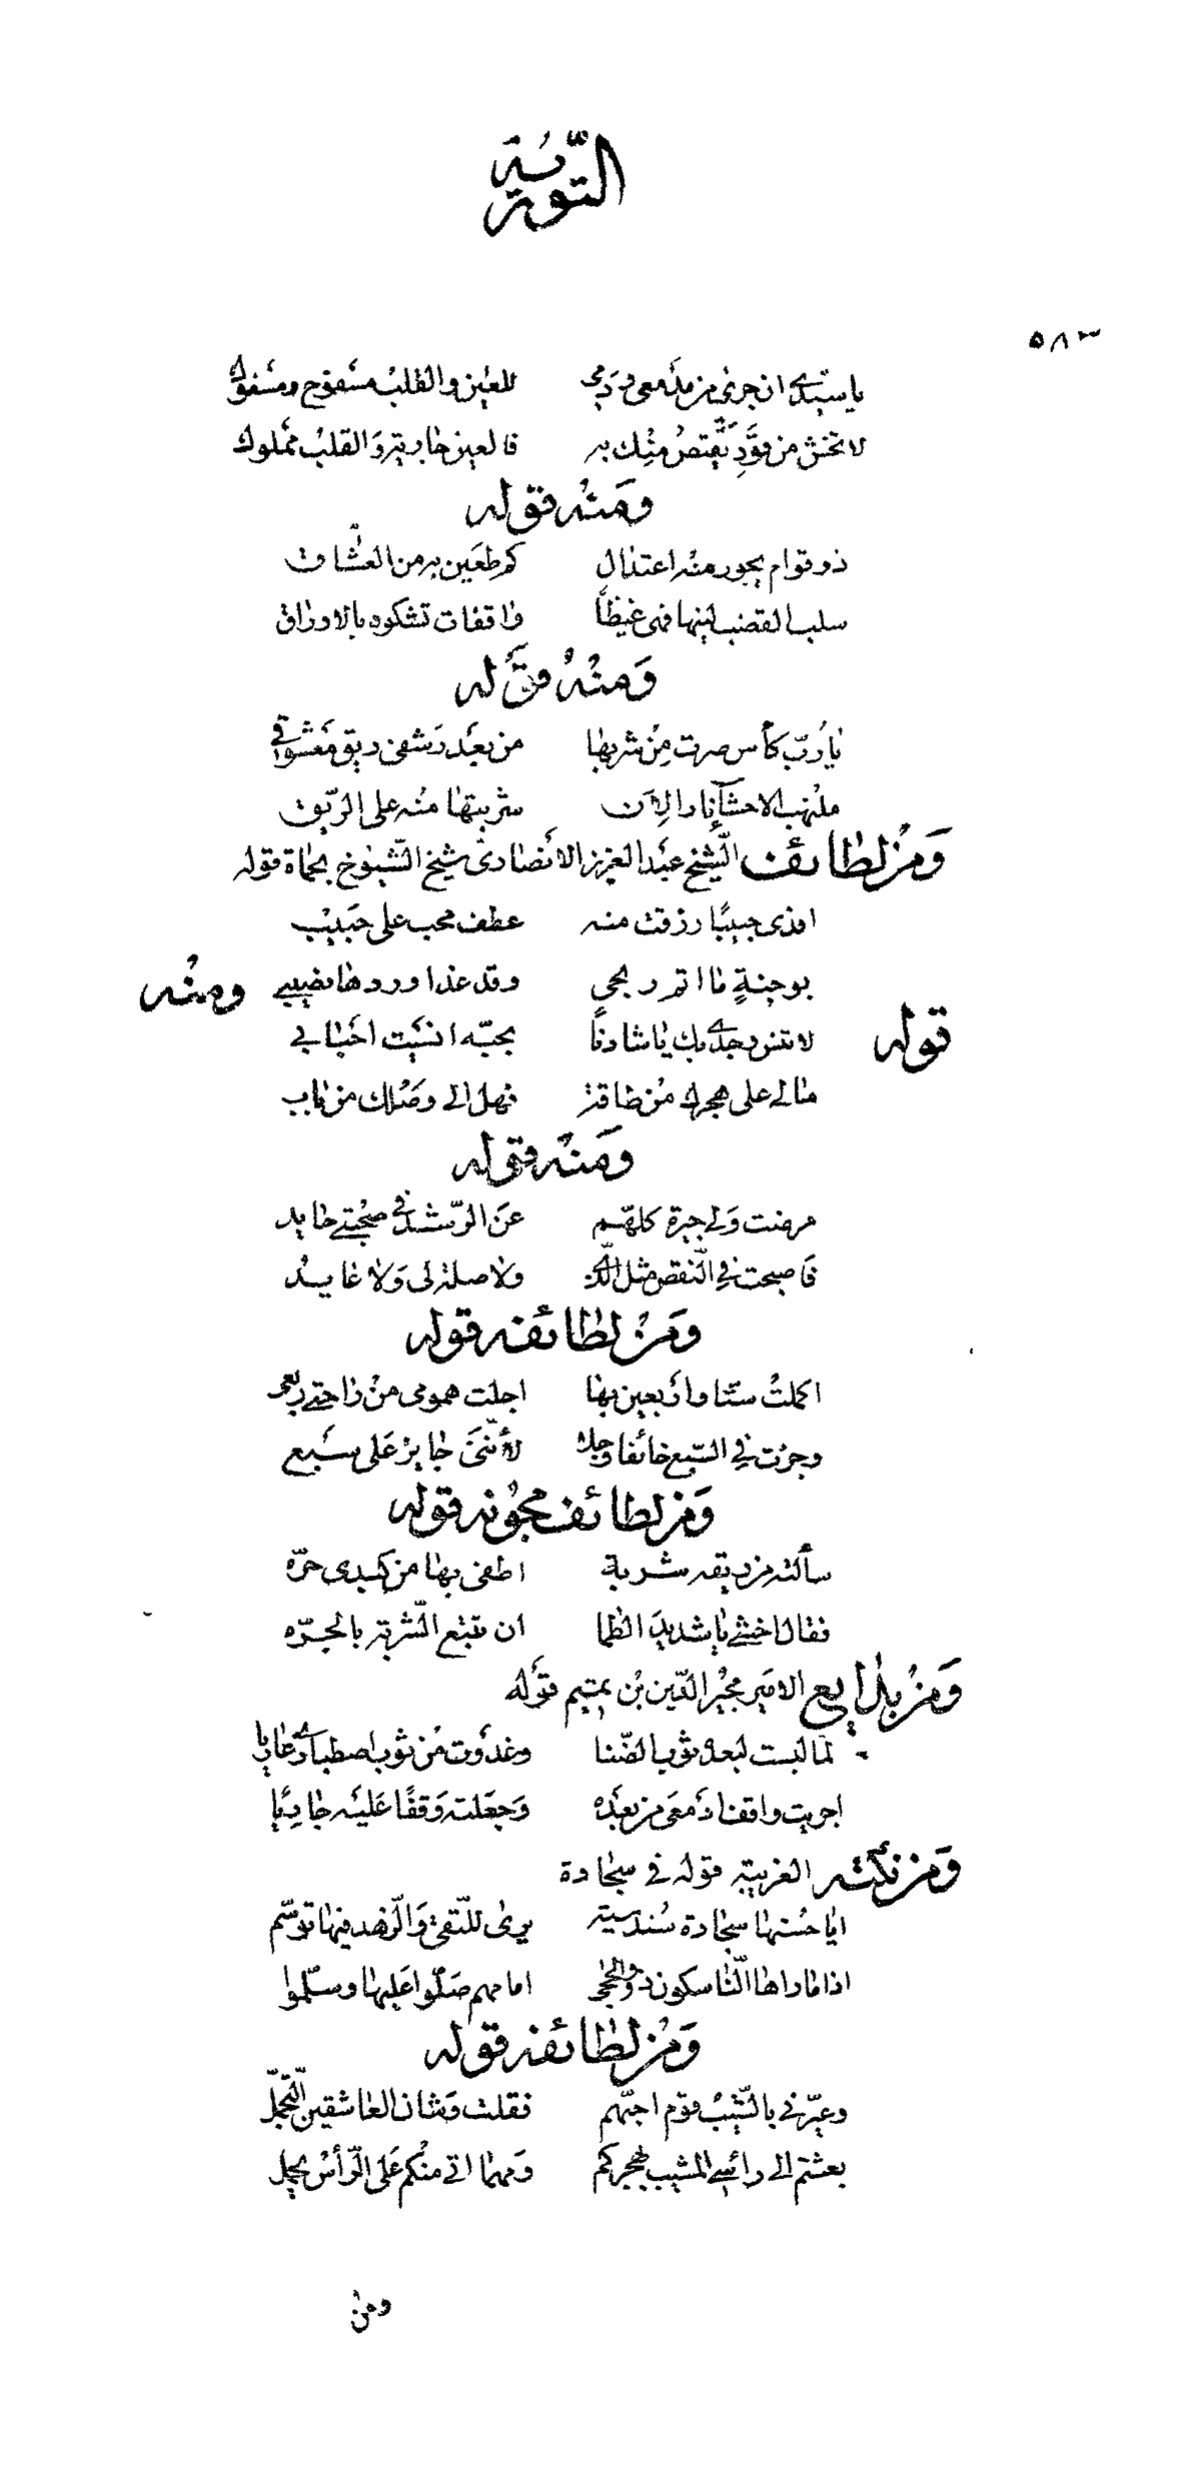 التّورية
٥٨٣
يا سيّدي ان جرى من مدمعي ودمي للعين والقلب مسفوح ومسفوك
لا تخش من قود يقتص منك به فالعين جارية والقلب مملوك
ومنه قوله
ذو قوام يجور منه اعتدال كم طعين به من العشّاق
سلب القضب لينها فهي غيظًا واقفات تشكوه بالاوراق
ومنه قوله
يا ربّ كأس صرت من شربها من بعد رشفي ريق معشوقي
ملتهب الاحشآء نادا لأن شربتها منه على الرّيق
ومن لطائف الشّيخ عبد العزيز الانصاري شيخ الشّيوخ بحماة قوله
افدي حبيبًا رزقت منه عطف محب على حبيب
بوجنةٍ ما اتم ربحي وقد غدا وردها نصيبي ومنه
قوله لا تنس وجدي بك يا شادنًا بحبّه انسيت احبابي
مالي على هجرك من طاقة فهل الى وصلك من باب
ومنه قوله
مرضت ولي جيرة كلهم عن الرّشد في صحبتي حايد
فاصبحت في النّقص مثل الّذي ولا صلة لي ولا عايد
ومن لطائفه قوله
اكملت ستّا واربعين بها اجلت همومي من راحتي ربعي
وجزت في السّبع خائفا وجلا لأنّني جايز على سبع
ومن لطائف مجونه قوله
سألته من ريقه شربة اطفي بها من كبدي حرّه
فقال اخشى يا شديد الظما ان تتبع الشّربة بالجرّه
ومن بدايع الامير مجير الدّين بن تميم قوله
لما لبست لبعده ثوب الضّنا وغدوت من ثوب اصطباري عاريا
اجريت واقف ادمعي من بعده وجعلته وقفًا عليه جاريًا
ومن نكته الغريبة قوله في سجادة
ايا حسنها سجادة سندسية يرى للتّقى والزّهد فيها توسّم
اذا ما راها النّاسكون ذوو الحجى امامهم صلّوا عليها وسلّموا
ومن لطائفه قوله
وعيّرني بالشّيب قوم احبّهم فقلت وشان العاشقين التّجمّل
بعثتم الى رأسي المشيب لهجركم ومهما اتى منكم على الرّأس يحمل
ومن